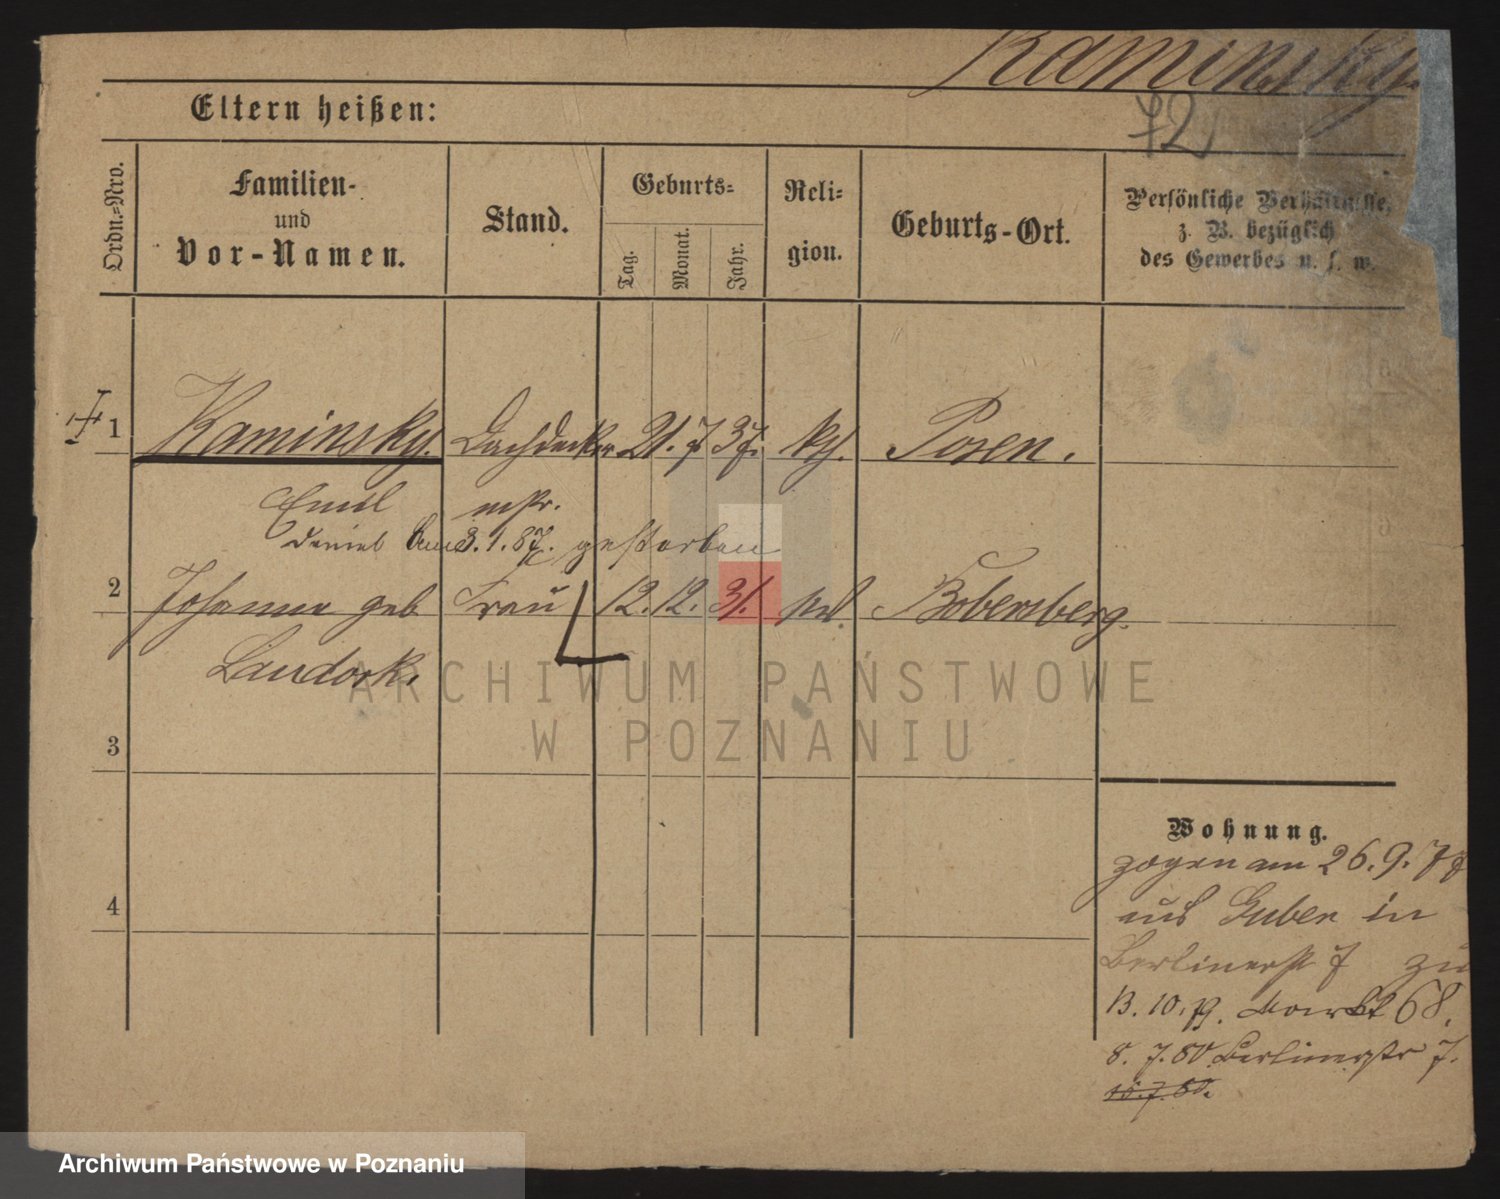 Kaminsky
72
Eltern heißen:
Ordn.=Nro.
Familien-
und
Vor-Namen.
Stand.
Geburts=
Tag.
Monat.
Jahr.
Reli=
gion.
Geburts-Ort.
Persönliche Verhältnisse,
z. B. bezüglich
des Gewerbes u. s. w.
1 Kaminsky. Dachdecker 21. 7 37. kth. Posen.
Emil mstr.
Daniel am 3. 1. 87. gestorben
2 Johanna geb Frau 12. 12. 31. Bobersberg.
3
4
Wohnung.
zogen am 26. 9. 77
aus Guben in
Berlinerst 7 zu
13. 10. 79. Markt 68.
8. 7. 80 Berlinerstr 7.
15. 7. 80.
ARCHIWUM PAŃSTWOWE
W POZNANIU
Archiwum Państwowe w Poznaniu